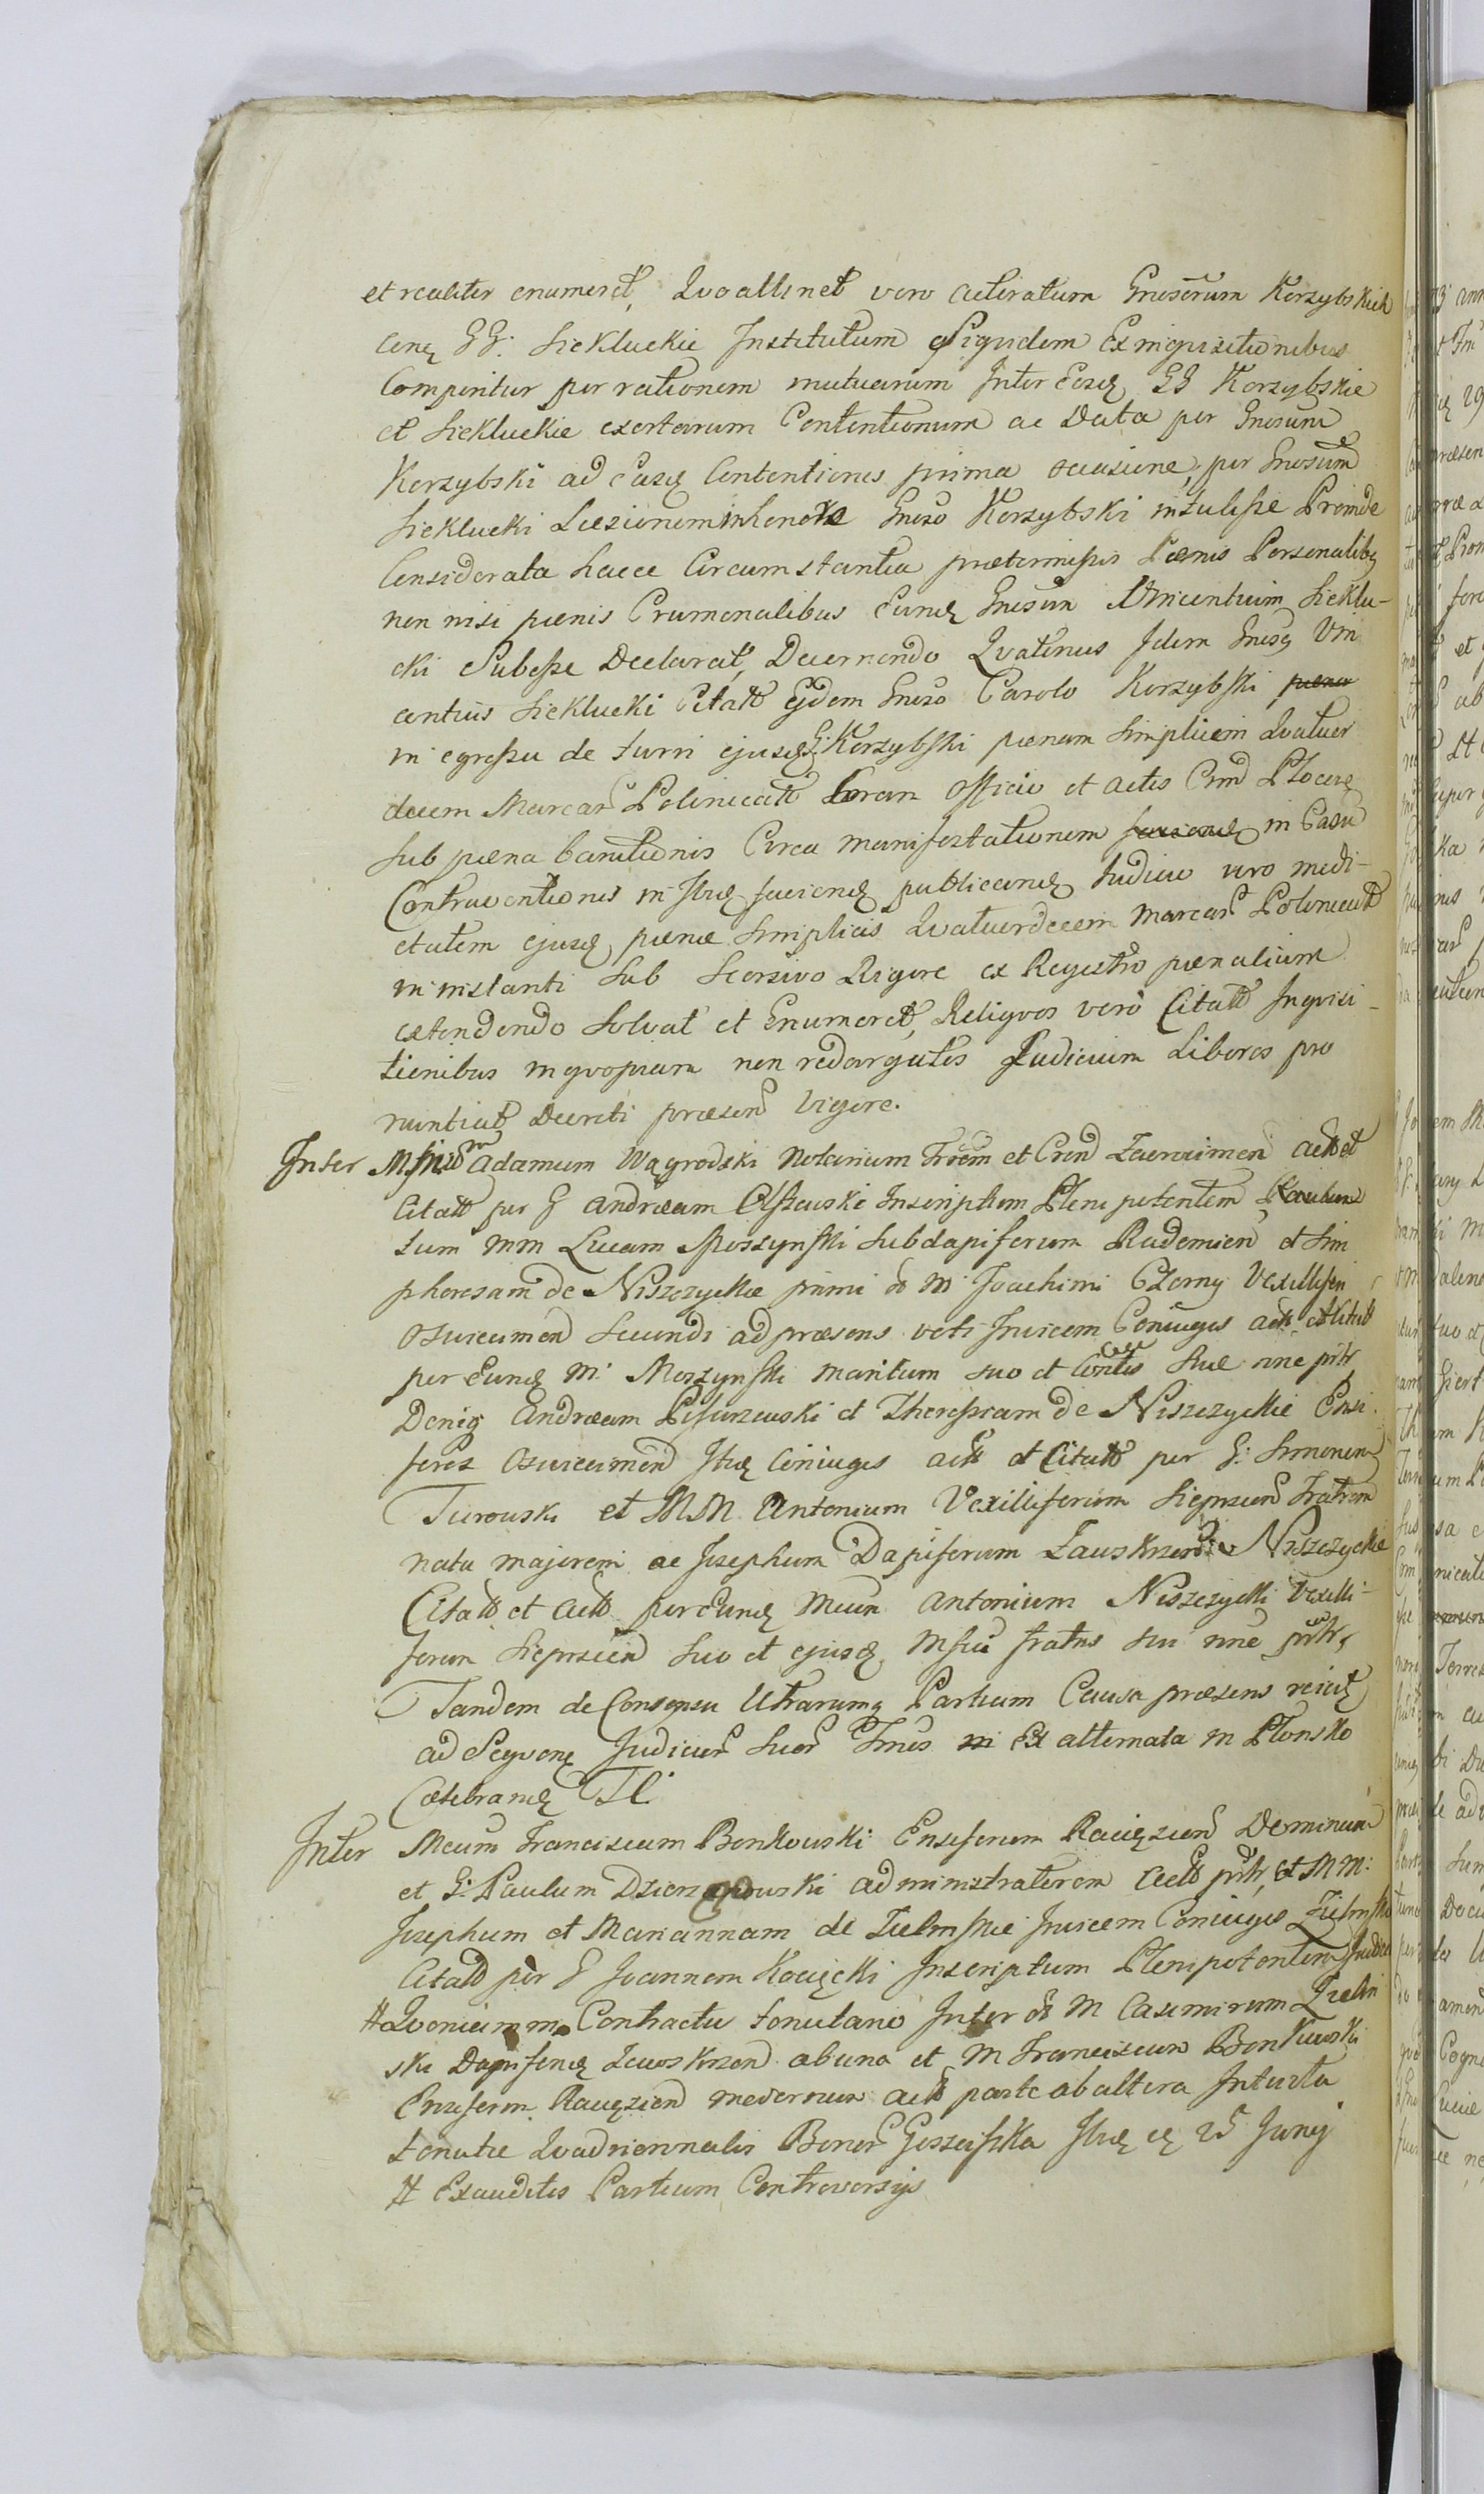 et realiter enumeret, Quoattinet vero Citeratum Gnosorum Korzybskich
conq GG: Siekluckie Institutum Siquidem Ex inquisitionibus
Comperitur per rationem mutuarum Inter Eosq GG Korzybskie
et Siekluckie exortarum Contentionum ac Data per Gnosum
Korzybski ad easq Contentiones prima occasione, per Gnosum
Sieklucki Laesionem in honore Gnoso Korzybski intulisse Proinde
Considerata haece Circumstantia praetermissis Paenis Personalibq
non nisi paenis Crumenalibus Eunq Gnosum Vincentium Sieklu-
cki Subesse Declarat, Decernendo Quatenus Idem Gnosq Vin
centius Sieklucki Citatt Ejdem Gnoso Carolo Korzybski paena
in egressu de turri ejusq G: Korzybski paenam Simplicem Quatuor
decem Marcar Polinicatt Coram Officio et actis Cmd Plocen
sub paena banitionis Circa manifestationem faciend in Casu
Contraventionis in Stuq faciend publicand Iudicio vero medi-
etatem ejusq paenae Simplicis Quatuordecem Marcar Polonicatt
in instanti Sub Scorsivo Rigore ex Regestro paenalium
extendendo Solvat et Enumeret, Reliquos vero Citatt Inquisi-
tionibus in quopiam non redargutos Iudicium Liberos pro
nuntiat Decreti praesen Vigore.
Inter Adamum Wągrodski Notarium et Zawrimen actt et
Citatt per G Andream Olszewski Inscriptum Plenipotentem
tum MM Lucam Moszynski Subdapiferum Rademien et Sim
phorosam de Niszczyckie primi M Joachimi Czerny Vexilliferi
Oswiecimen Secundi ad praesens voti Invicem Coniuges actt et Citatt
per Eunq M: Moszynski maritum suo et Contis Suae nne
Deniq Andream Pisarzewski et Theressiam de Niszczyckie Ensi-
feros Oswiecimen Stuq Coniuges actt et Citatt per G: Simonem
Turowski et MM Antonium Vexilliferum Sieprscien Fratrem
natu majorem ac Josephum Dapiferum Zawskrzen Niszczyckie
Citatt et actt per Eunq Mcum Antonium Niszczycki Vexilli-
ferum Sieprscien Suo et ejusq fratris sui nne
Tandem de Consensu Utrarumq Partium Causa praesens reicit
ad Sequen Iudicior Suor Tmos Ex alternata in Płonsko
Caelebrand Tl.
Inter Mcum Franciscum Bonkowski Ensiferum Raciązien Dominum
et G: Paulum Dzierzanowski administratorem actt et MM:
Josephum et Mariannam de Zielinskie Invicem Coniuges Zielinskie
Citatt per G Joannem Kocięcki Inscriptum Plenipotentem
# Quoniam Contractu tenutario Inter M Casimirum Zielin
ski Dapiferuq Zawskrzen abuna et M Franciscum Bonkowski
Ensiferum Raciązien modernum actt parte ab altera Intuitu
tenutae Quadriennalis Bonor Goszczyska Stuq 25 Junij
# Exauditis Partium Controversijs